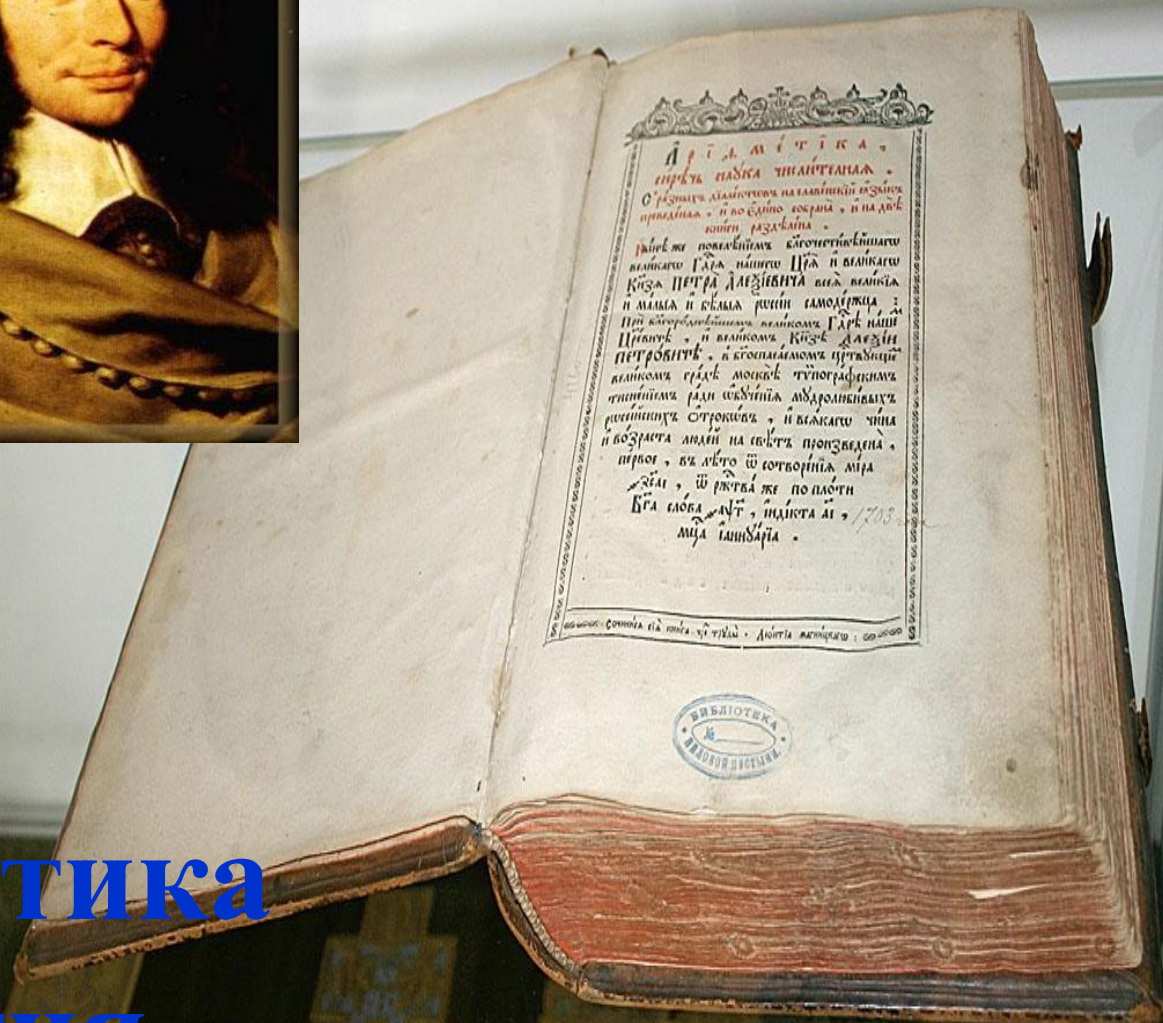 Арїѳме́тїка,
сирѣ́чь наꙋ́ка числи́телная.
С̾ ра́зныхъ дїале́ктѡвъ на славе́нскїй ꙗ҆зы́къ
преведе́ная, и҆ во є҆ди́но собрана̀, и҆ на двѣ̀
кни̑ги раздѣле́на.
Ны́нѣ же повелѣ́нїемъ бл҃гочести́вѣйшагѡ
вели́кагѡ Гдⷭ҇рѧ на́шегѡ Цр҃ѧ̀ и҆ вели́кагѡ
Кнѧ҃зѧ ПЕТРА̀ АЛЕѮІ́ЕВИЧА всеѧ̀ вели́кїѧ
и҆ ма́лыѧ и҆ бѣ́лыѧ рѡссі́и самоде́ржца :
При бл҃горо́днѣйшемъ вели́комъ Гдⷭ҇рѣ на́шемъ
Цр҃е́вичѣ, и҆ вели́комъ Кнѧ҃зѣ АЛЕѮІ́И
ПЕТРО́ВИЧѢ, в̾ бг҃оспаса́емомъ црⷭ҇твꙋ́ющемъ
вели́комъ гра́дѣ москвѣ̀ тѷпогра́фскимъ
тисне́нїемъ ра́ди ѡ҆бꙋче́нїѧ мꙋдролюби́выхъ
рѡссі́йскихъ ѻ҆́трокѡвъ, и҆ всѧ́кагѡ чи́на
и҆ во́зраста люде́й на свѣ́тъ произведена̀,
пе́рвое, въ лѣ́то ѿ сотворе́нїѧ мі́ра
҂зсаі, ѿ ржⷭ҇тва̀ же по пло́ти
Бг҃а сло́ва ҂аѱг, і҆нді́кта аі, 1703
мцⷭ҇а і҆аннꙋа́рїа.
Сочини́сѧ сїѧ̀ кни́га чрез̾ трꙋды̀ Леѻ́нтїа магни́цкагѡ :
БИБЛІОТЕКА
№
НИЛОВОЙ ПУСТЫНИ.
тика